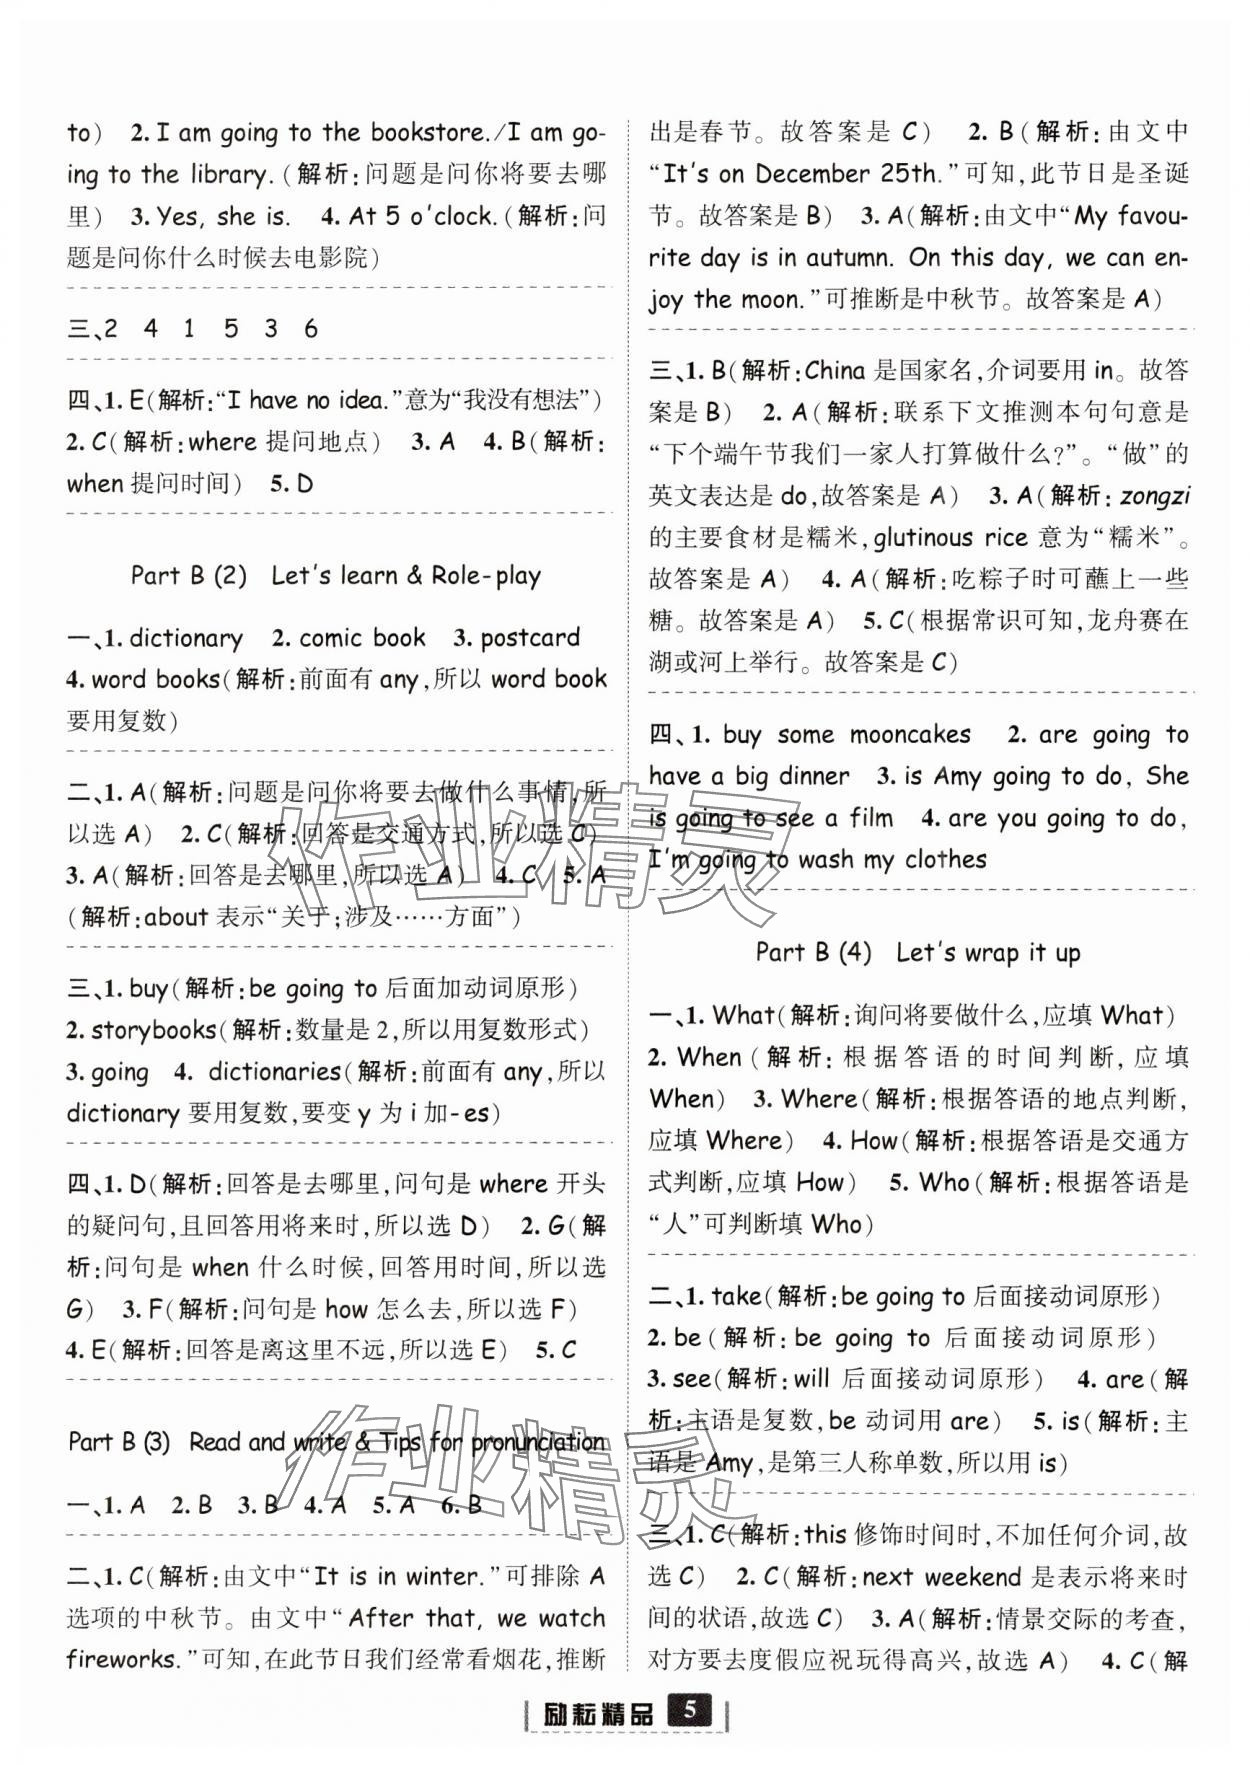 to)　2. I am going to the bookstore./I am go-
ing to the library.(解析:问题是问你将要去哪
里)　3. Yes, she is.　4. At 5 o'clock.(解析:问
题是问你什么时候去电影院)
三、2　4　1　5　3　6
四、1. E(解析:“I have no idea.”意为“我没有想法”)
2. C(解析:where 提问地点)　3. A　4. B(解析:
when 提问时间)　5. D
Part B (2)　Let's learn & Role-play
一、1. dictionary　2. comic book　3. postcard
4. word books(解析:前面有 any,所以 word book
要用复数)
二、1. A(解析:问题是问你将要去做什么事情,所
以选 A)　2. C(解析:回答是交通方式,所以选 C)
3. A(解析:回答是去哪里,所以选 A)　4. C　5. A
(解析:about 表示“关于;涉及……方面”)
三、1. buy(解析:be going to 后面加动词原形)
2. storybooks(解析:数量是 2,所以用复数形式)
3. going　4. dictionaries(解析:前面有 any,所以
dictionary 要用复数,要变 y 为 i 加-es)
四、1. D(解析:回答是去哪里,问句是 where 开头
的疑问句,且回答用将来时,所以选 D)　2. G(解
析:问句是 when 什么时候,回答用时间,所以选
G)　3. F(解析:问句是 how 怎么去,所以选 F)
4. E(解析:回答是离这里不远,所以选 E)　5. C
Part B (3)　Read and write & Tips for pronunciation
一、1. A　2. B　3. B　4. A　5. A　6. B
二、1. C(解析:由文中“It is in winter.”可排除 A
选项的中秋节。由文中“After that, we watch
fireworks.”可知,在此节日我们经常看烟花,推断
出是春节。故答案是 C)　2. B(解析:由文中
“It's on December 25th.”可知,此节日是圣诞
节。故答案是 B)　3. A(解析:由文中“My favou-
rite day is in autumn. On this day, we can en-
joy the moon.”可推断是中秋节。故答案是 A)
三、1. B(解析:China 是国家名,介词要用 in。故答
案是 B)　2. A(解析:联系下文推测本句句意是
“下个端午节我们一家人打算做什么?”。“做”的
英文表达是 do,故答案是 A)　3. A(解析: zongzi
的主要食材是糯米,glutinous rice 意为“糯米”。
故答案是 A)　4. A(解析:吃粽子时可蘸上一些
糖。故答案是 A)　5. C(根据常识可知,龙舟赛在
湖或河上举行。故答案是 C)
四、1. buy some mooncakes　2. are going to
have a big dinner　3. is Amy going to do, She
is going to see a film　4. are you going to do,
I'm going to wash my clothes
Part B (4)　Let's wrap it up
一、1. What(解析:询问将要做什么,应填 What)
2. When (解析:根据答语的时间判断,应填
When)　3. Where(解析:根据答语的地点判断,
应填 Where)　4. How(解析:根据答语是交通方
式判断,应填 How)　5. Who(解析:根据答语是
“人”可判断填 Who)
二、1. take(解析:be going to 后面接动词原形)
2. be(解析:be going to 后面接动词原形)
3. see(解析:will 后面接动词原形)　4. are(解
析:主语是复数,be 动词用 are)　5. is(解析:主
语是 Amy,是第三人称单数,所以用 is)
三、1. C(解析:this 修饰时间时,不加任何介词,故
选 C)　2. C(解析:next weekend 是表示将来时
间的状语,故选 C)　3. A(解析:情景交际的考查,
对方要去度假应祝玩得高兴,故选 A)　4. C(解
作业精灵
作业精灵
励耘精品　5